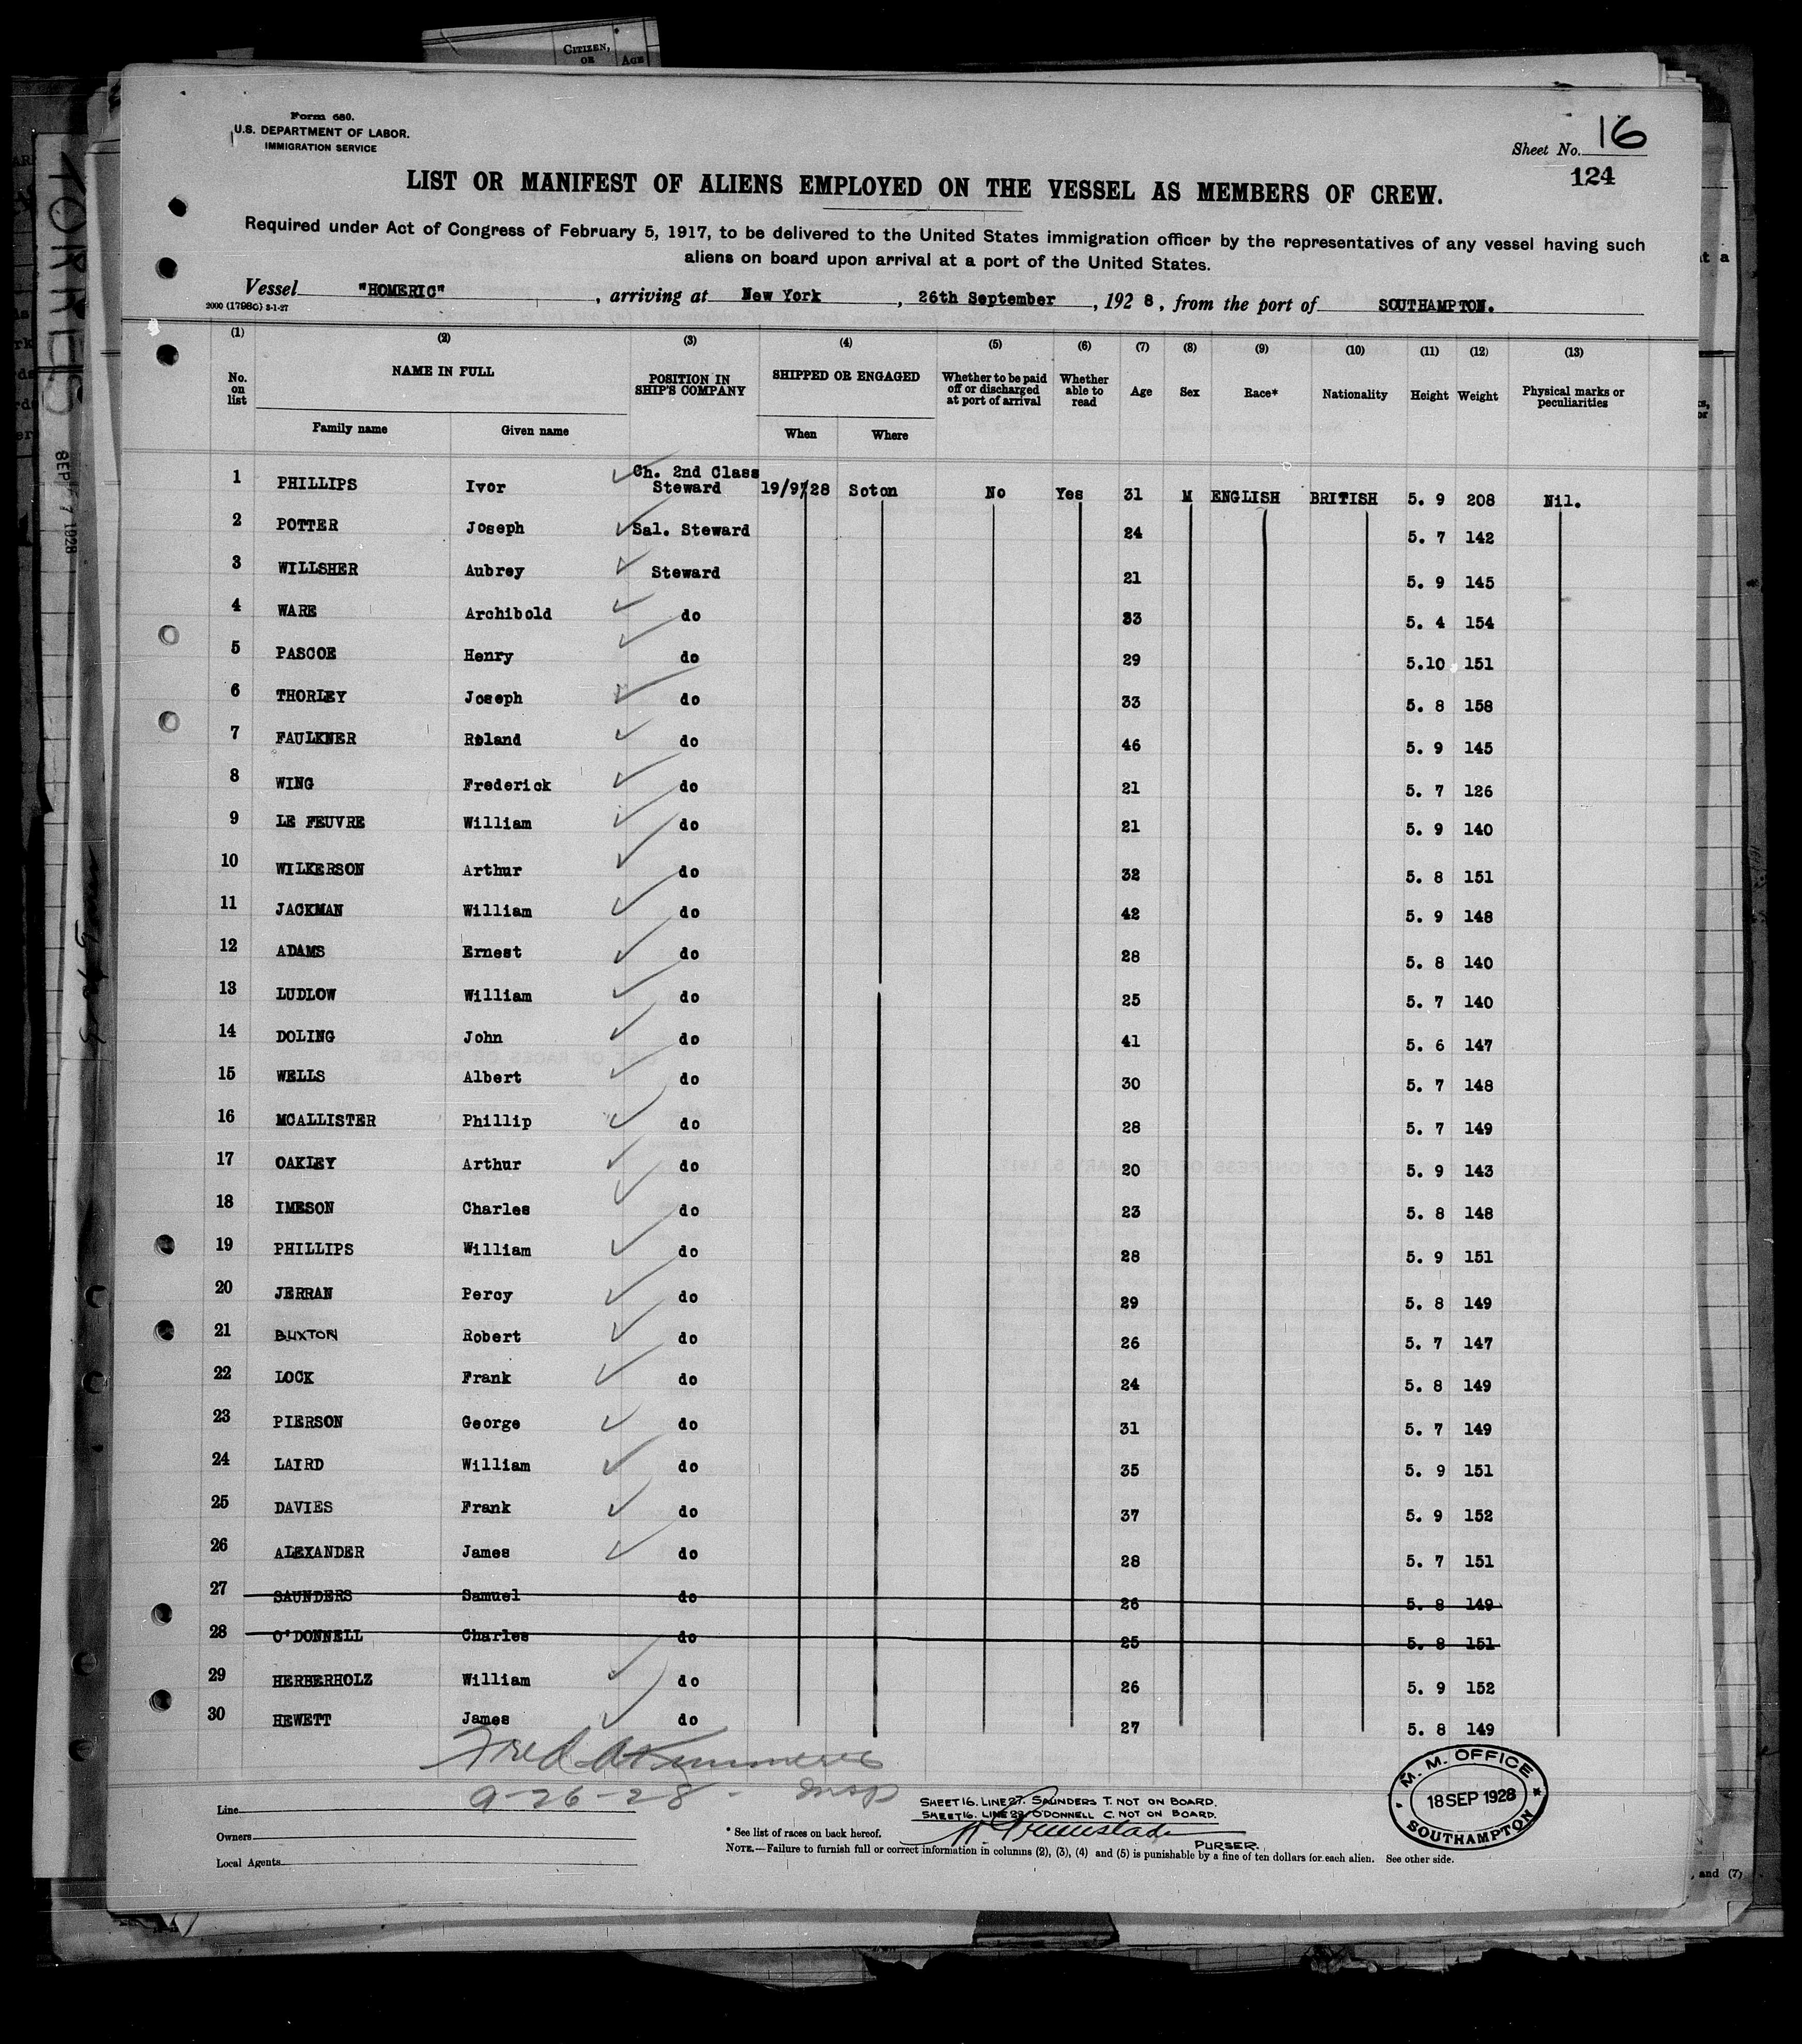 CITIZEN, OR
AGE
TORRES
SEP 1928
Form 680.
U.S. DEPARTMENT OF LABOR.
IMMIGRATION SERVICE
Sheet No. 16
124
LIST OR MANIFEST OF ALIENS EMPLOYED ON THE VESSEL AS MEMBERS OF CREW.
Required under Act of Congress of February 5, 1917, to be delivered to the United States immigration officer by the representatives of any vessel having such
aliens on board upon arrival at a port of the United States.
Vessel "HOMERIC", arriving at New York, 26th September, 1928, from the port of SOUTHAMPTON.
2000 (17980) 3-1-27
(1) (2) (3) (4) (5) (6) (7) (8) (9) (10) (11) (12) (13)
No. on list NAME IN FULL POSITION IN SHIP'S COMPANY SHIPPED OR ENGAGED Whether to be paid off or discharged at port of arrival Whether able to read Age Sex Race* Nationality Height Weight Physical marks or peculiarities
Family name Given name When Where
1 PHILLIPS Ivor Ch. 2nd Class Steward 19/9/28 Soton No Yes 31 M ENGLISH BRITISH 5. 9 208 Nil.
2 POTTER Joseph Sal. Steward 24 5. 7 142
3 WILLSHER Aubrey Steward 21 5. 9 145
4 WARE Archibold do 33 5. 4 154
5 PASCOE Henry do 29 5.10 151
6 THORLEY Joseph do 33 5. 8 158
7 FAULKNER Roland do 46 5. 9 145
8 WING Frederick do 21 5. 7 126
9 LE FEUVRE William do 21 5. 9 140
10 WILKERSON Arthur do 32 5. 8 151
11 JACKMAN William do 42 5. 9 148
12 ADAMS Ernest do 28 5. 8 140
13 LUDLOW William do 25 5. 7 140
14 DOLING John do 41 5. 6 147
15 WELLS Albert do 30 5. 7 148
16 MCALLISTER Phillip do 28 5. 7 149
17 OAKLEY Arthur do 20 5. 9 143
18 IMESON Charles do 23 5. 8 148
19 PHILLIPS William do 28 5. 9 151
20 JERRAN Percy do 29 5. 8 149
21 BUXTON Robert do 26 5. 7 147
22 LOCK Frank do 24 5. 8 149
23 PIERSON George do 31 5. 7 149
24 LAIRD William do 35 5. 9 151
25 DAVIES Frank do 37 5. 9 152
26 ALEXANDER James do 28 5. 7 151
27 SAUNDERS Samuel do 26 5. 8 149
28 O'DONNELL Charles do 25 5. 8 151
29 HERBERHOLZ William do 26 5. 9 152
30 HEWETT James do 27 5. 8 149
9-26-28 - Insp
Line
Owners
Local Agents
SHEET 16. LINE 27. SAUNDERS T. NOT ON BOARD.
SHEET 16. LINE 28 O'DONNELL C. NOT ON BOARD.
PURSER.
* See list of races on back hereof.
NOTE.—Failure to furnish full or correct information in columns (2), (3), (4) and (5) is punishable by a fine of ten dollars for each alien. See other side.
M. M. OFFICE
18 SEP 1928
SOUTHAMPTON
, and (7)